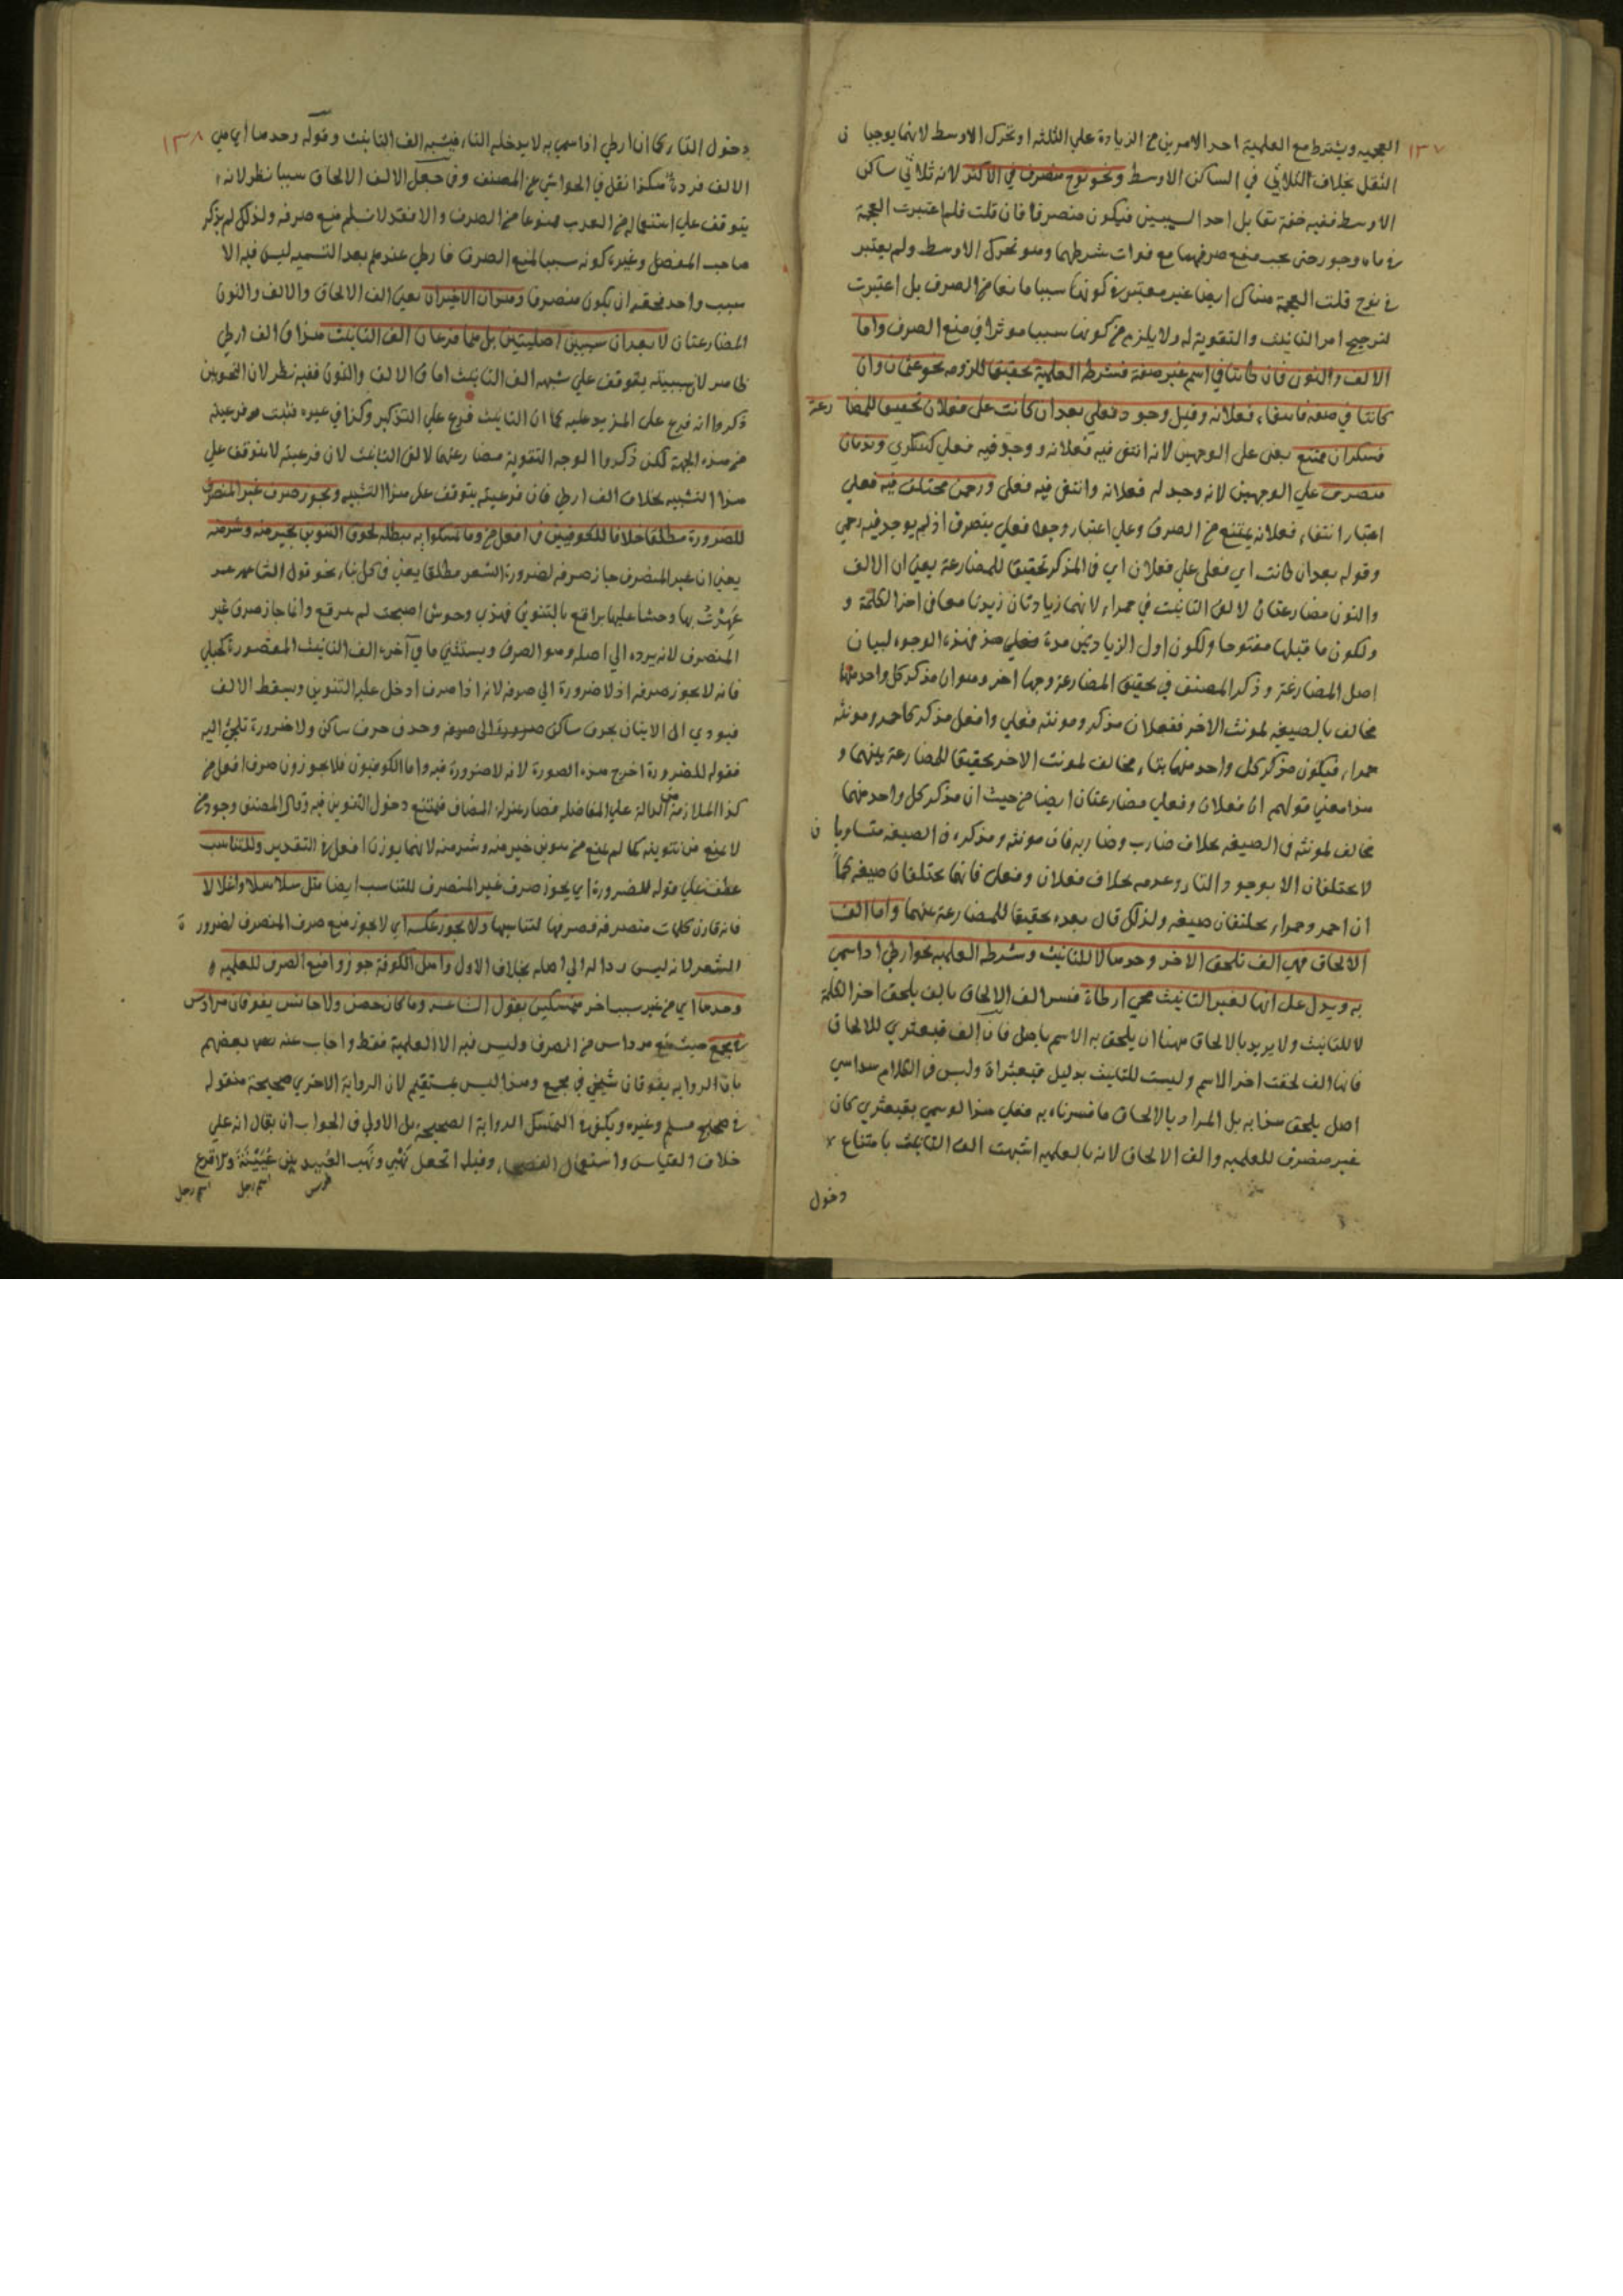 ١٣٧
العجمية ويشترط مع العلمية احد الامرين من الزيادة علي الثلثة او تحرك الاوسط لانهما يوجبان
الثقل بخلاف الثلاثي في الساكن الاوسط ونحو نوح منصرف في الاكثر لانه ثلاثي ساكن
الاوسط ففيه خفة تقابل احد السببين فيكون منصرفا فان قلت فلم اعتبرت العجمة
في ماه وجور حتى يجب منع صرفهما مع فوات شرطهما وهو تحرك الاوسط ولم يعتبر
في نوح قلت العجمة هناك ايضا غير معتبرة في كونها سببا مانعا من الصرف بل اعتبرت
لترجيح امر التانيث والتقوية له ولا يلزم من كونها سببا موثرا في منع الصرف واما
الالف والنون فان كانتا في اسم غير صفة فشرطه العلمية تحقيقا للزومه نحو عثمان وان
كانتا في صفة فانتفاء فعلانة وقيل وجود فعلي بعد ان كانت على فعلان تحقيقا للمضارعة
فسكران ممتنع يعني على الوجهين لانه انتفى فيه فعلانة ووجد فيه فعلي كسكري وندمان
منصرف علي الوجهين لانه وجد له فعلانة وانتفى فيه فعلي ورحمن مختلف فيه فعلي
اعتبار انتفاء فعلانة يمتنع من الصرف وعلي اعتبار وجود فعلي ينصرف اذ لم يوجد فيه رحمي
وقوله بعد ان كانت اي فعلى على فعلان اي في المذكر تحقيقا للمضارعة يعني ان الالف
والنون مضارعتان لالفي التانيث في حمراء لانهما زيادتان زيدتا معا في اخر الكلمة و
ولكون ما قبلها مفتوحا ولكون اول الزيادتين مدة فهذه الوجوه لبيان
اصل المضارعة وذكر المصنف في تحقيق المضارعة وجها اخر وهو ان مذكر كل واحد منهما
مخالف بالصيغة لمونث الاخر ففعلان مذكر ومونثه فعلي وافعل مذكر كاحمر ومونثه
حمراء فيكون مذكر كل واحد منهما بناء مخالف لمونث الاخر تحقيقا للمضارعة بينهما و
هذا معني قولهم ان فعلان وفعلي مضارعتان ايضا من حيث ان مذكر كل واحد منهما
مخالف لمونثه في الصيغة بخلاف ضارب وضاربة فان مونثه ومذكره في الصيغة متساويان
لا يختلفان الا بوجود التاء وعدمه بخلاف فعلان وفعلى فانهما يختلفان صيغة كما
ان احمر وحمراء يختلفان صيغة ولذلك قال بعده تحقيقا للمضارعة بينهما واما الف
الالحاق فهي الف تلحق الاخر وحدها لا للتانيث وشرطه العلمية نحو ارطي اذا سمي
به ويدل على انها لغير التانيث مجي ارطاة فسر الف الالحاق بالف يلحق اخر الكلمة
لا للتانيث ولا يريد بالالحاق ههنا ان يلحق به الاسم باصل فان الف قبعثري للالحاق
فانها الف لحقت اخر الاسم وليست للتانيث بدليل قبعثراة وليس في الكلام سداسي
اصل يلحق هذا به بل المراد بالالحاق ما فسرناه به فعلي هذا لو سمي بقبعثري كان
غير منصرف للعلمية والف الالحاق لانه بالعلمية اشبهت الف التانيث بامتناع
دخول
١٣٨
دخول التاء كما ان ارطي اذا سمي به لا يدخله التاء فيشبه الف التانيث وقوله وحدها اي هي
الالف فردة هكذا نقل في الحواشي عن المصنف وفي جعل الالف الالحاق سببا نظر لانه
يتوقف علي استعماله في العرب ممنوعا من الصرف والا فقد لا نسلم منع صرفه ولذلك لم يذكر
صاحب المفصل وغيره كونه سببا لمنع الصرف فارطي عندهم بعد التسمية ليس فيه الا
سبب واحد فحقه ان يكون منصرفا وهذان الاخيران يعني الف الالحاق والالف والنون
المضارعتان لا يعدان سببين اصليين بل هما فرعان الف التانيث هذا في الف ارطي
ظاهر لان سببيته يتوقف علي شبهه الف التانيث اما في الالف والنون ففيه نظر لان النحويين
ذكروا انه فرع على المزيد عليه كما ان التانيث فرع علي التذكير وكذا في غيره فثبت فرعيته
من هذه الجهة لكن ذكروا الوجه التقوية مضارعتها لالفي التانيث لان فرعيته لا يتوقف علي
هذا التشبيه بخلاف الف ارطي فان فرعيته يتوقف على هذا التشبيه ويجوز صرف غير المنصرف
للضرورة مطلقا خلافا للكوفيين في افعل من وما تمسكوا به يبطله لحوق التنوين بخير منه وشر منه
يعني ان غير المنصرف جاز صرفه لضرورة الشعر مطلقا يعني في كل بناء نحو قول الشاعر
عهدت بها وحشا عليها براقع بالتنوين فهذي وحوش اصبحت لم تبرقع وانما جاز صرف غير
المنصرف لانه يرده الي اصله وهو الصرف ويستثني ما في آخره الف التانيث المقصورة كحبلي
فانه لا يجوز صرفه اذ لا ضرورة الي صرفه لانه اذا صرف ادخل عليه التنوين ويسقط الالف
فيودي الى الاتيان بحرف ساكن وحذف حرف ساكن ولا ضرورة تلجئ اليه
فقوله للضرورة اخرج هذه الصورة لانه لا ضرورة فيه واما الكوفيون فلا يجوزون صرف افعل من
كذا الملازمة من الدالة علي المفاضلة فصار بمنزلة المضاف فيمتنع دخول التنوين فيه وقال المصنف وجود من
لا يمنع من تنوينه كما لم يمنع من تنوين خير منه وشر منه لانهما بوزن افعل في التقدير وللتناسب
عطف علي قوله للضرورة اي يجوز صرف غير المنصرف للتناسب ايضا مثل سلاسلا واغلالا
فانه قارن كلمات منصرفة فصرفها لتناسبها ولا يجوز عكسه اي لا يجوز منع صرف المنصرف لضرورة
الشعر لانه ليس ردا له الي اصله بخلاف الاول واهل الكوفة جوزوا منع الصرف للعلمية
وحدها اي من غير سبب اخر متمسكين بقول الشاعر وما كان حصن ولا حابس يفوقان مرداس
في مجمع حيث منع مرداس من الصرف وليس فيه الا العلمية فقط واجاب عنه بعضهم
بان الرواية يفوقان شيخي في مجمع وهذا ليس بمستقيم لان الرواية الاخري صحيحة منقولة
في صحيح مسلم وغيره ويكفي في التمسك الرواية الصحيحة بل الاولي في الجواب ان يقال انه علي
خلاف القياس واستعمال الفصحاء وقبله اتجعل نهبي ونهب العبيد بين عيينة والاقرع
فرس اسم رجل اسم رجل